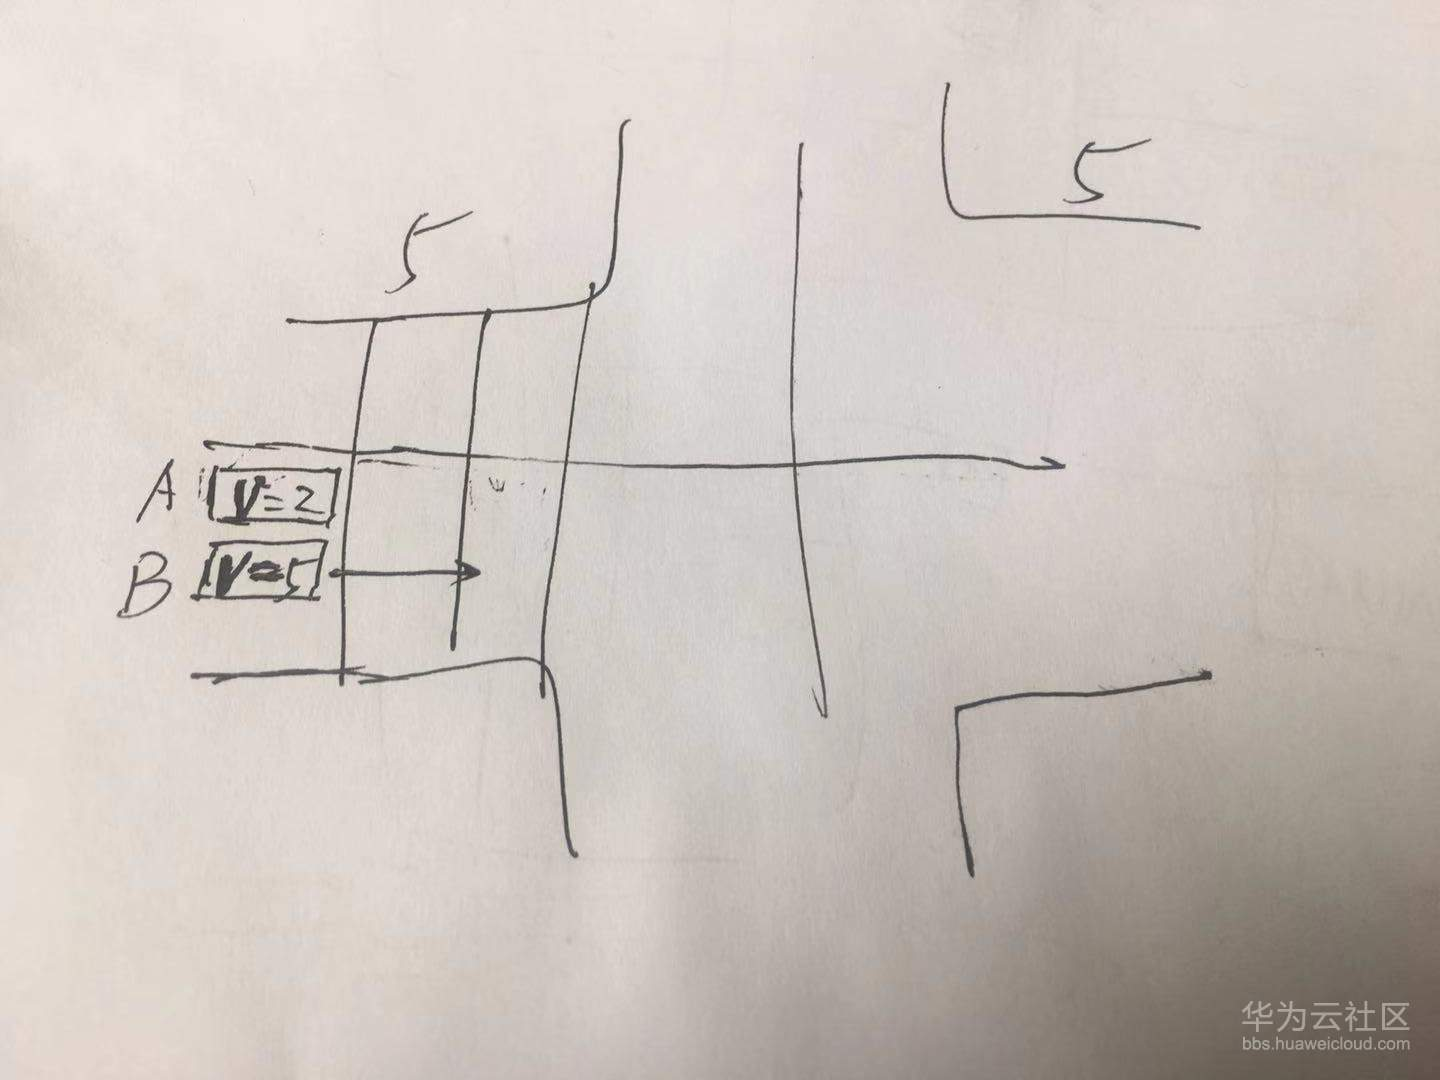 5
5
A V=2
B V=5
华为云社区
bbs.huaweicloud.com